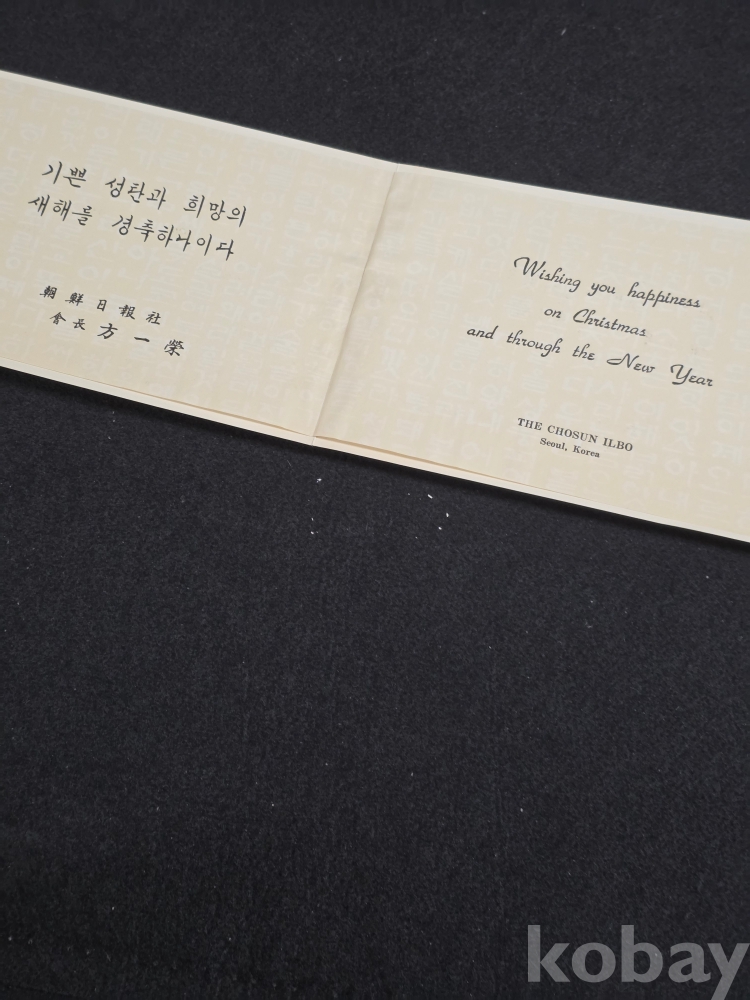 기쁜 성탄과 희망의
새해를 경축하나이다
朝鮮日報社
會長 方一榮
Wishing you happiness
on Christmas
and through the New Year
THE CHOSUN ILBO
Seoul, Korea
kobay